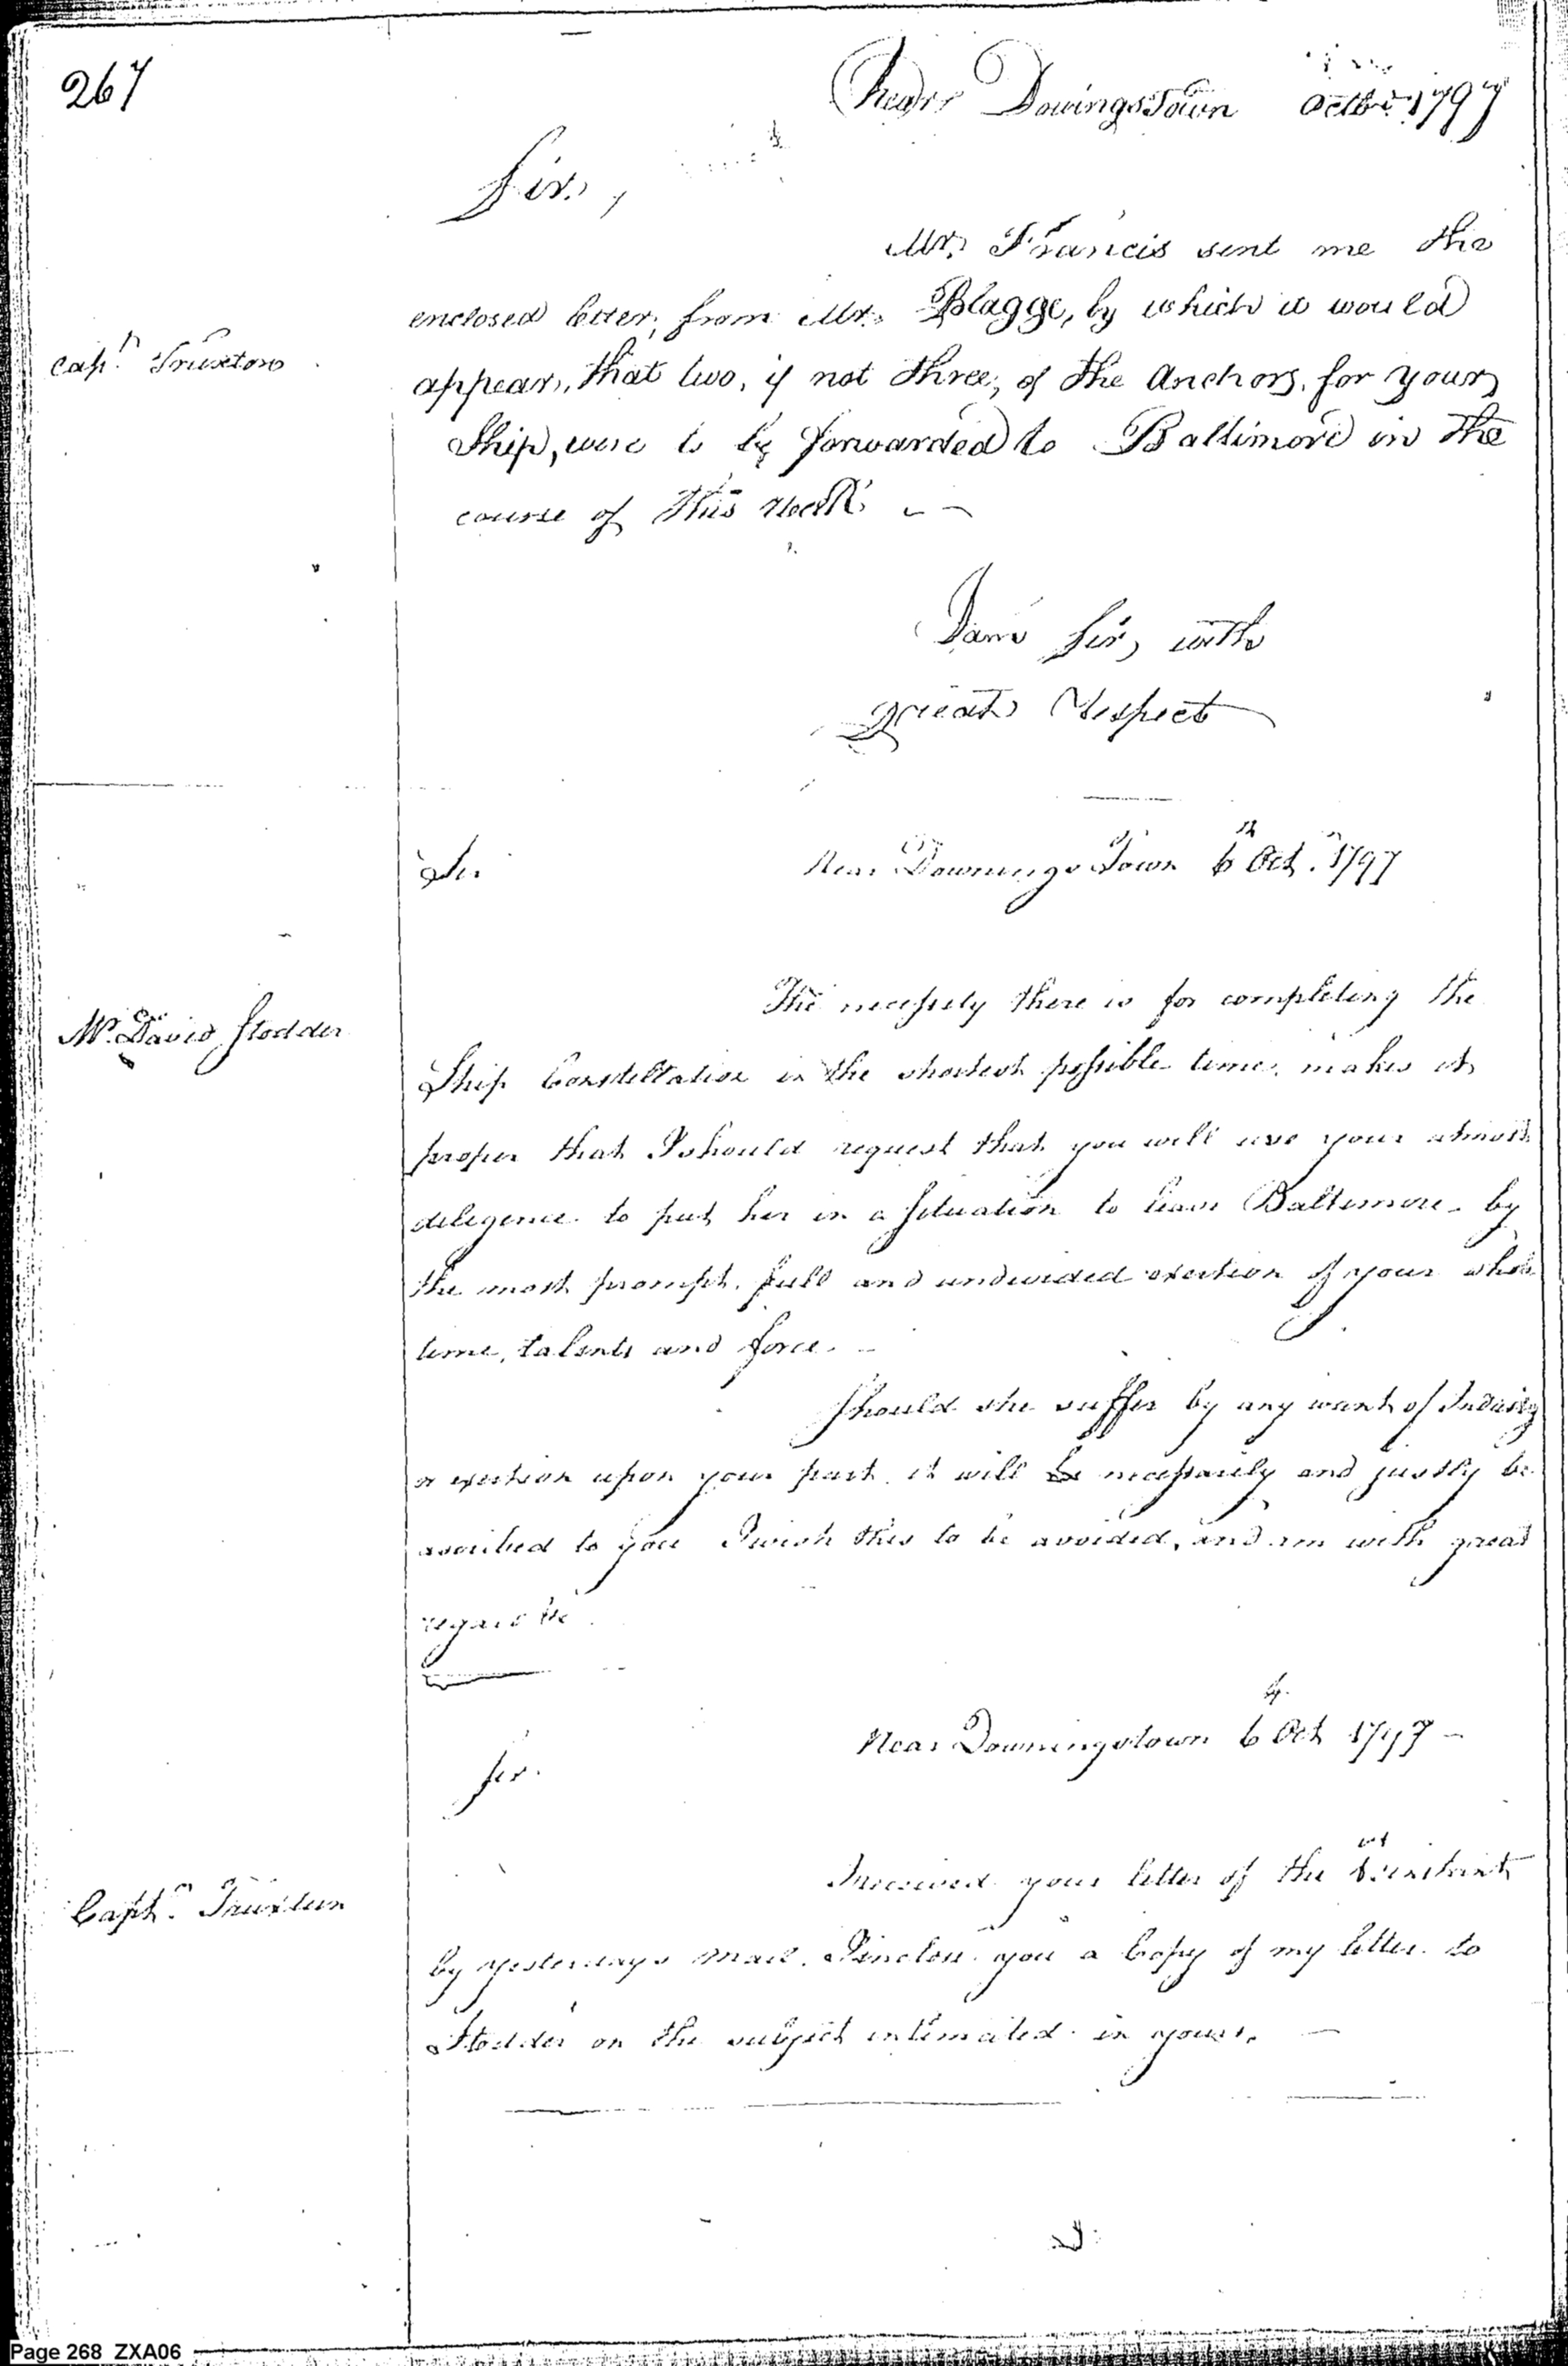 267
Near Dowingstown Octbr 1797
Sir,
Mr. Francis sent me the
enclosed letter, from Mr. Blagge, by which it would
Capn. Truxton
appear, that two, if not three, of the Anchors, for your
Ship, were to be forwarded to Baltimore in the
course of this Week.
I am Sir, with
great Respect
Sir
Near Downings Town 6th Oct. 1797
The necessity there is for completing the
Mr. David Stodder
Ship Constellation in the shortest possible time, makes it
proper that I should request that you will use your utmost
deligence to put her in a Situation to leave Baltimore by
the most prompt, full and undivided exertion of your whole
time, talents and force.
Should she suffer by any want of Industry
or exertion upon your part it will be necessarily and justly be
ascribed to you I wish this to be avoided, and am with great
regard &c
Near Downingstown 6th Oct 1797
Sir.
I received your letter of the instant
Captn. Truxtun
by yesterdays mail. I inclose you a Copy of my letter to
Stodder on the subject intimated in yours.
Page 268 ZXA06